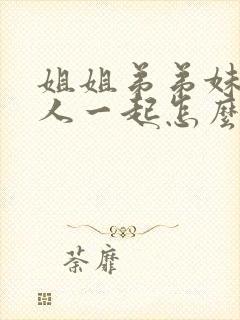 姐姐弟弟妹
人一起怎麼
荼靡